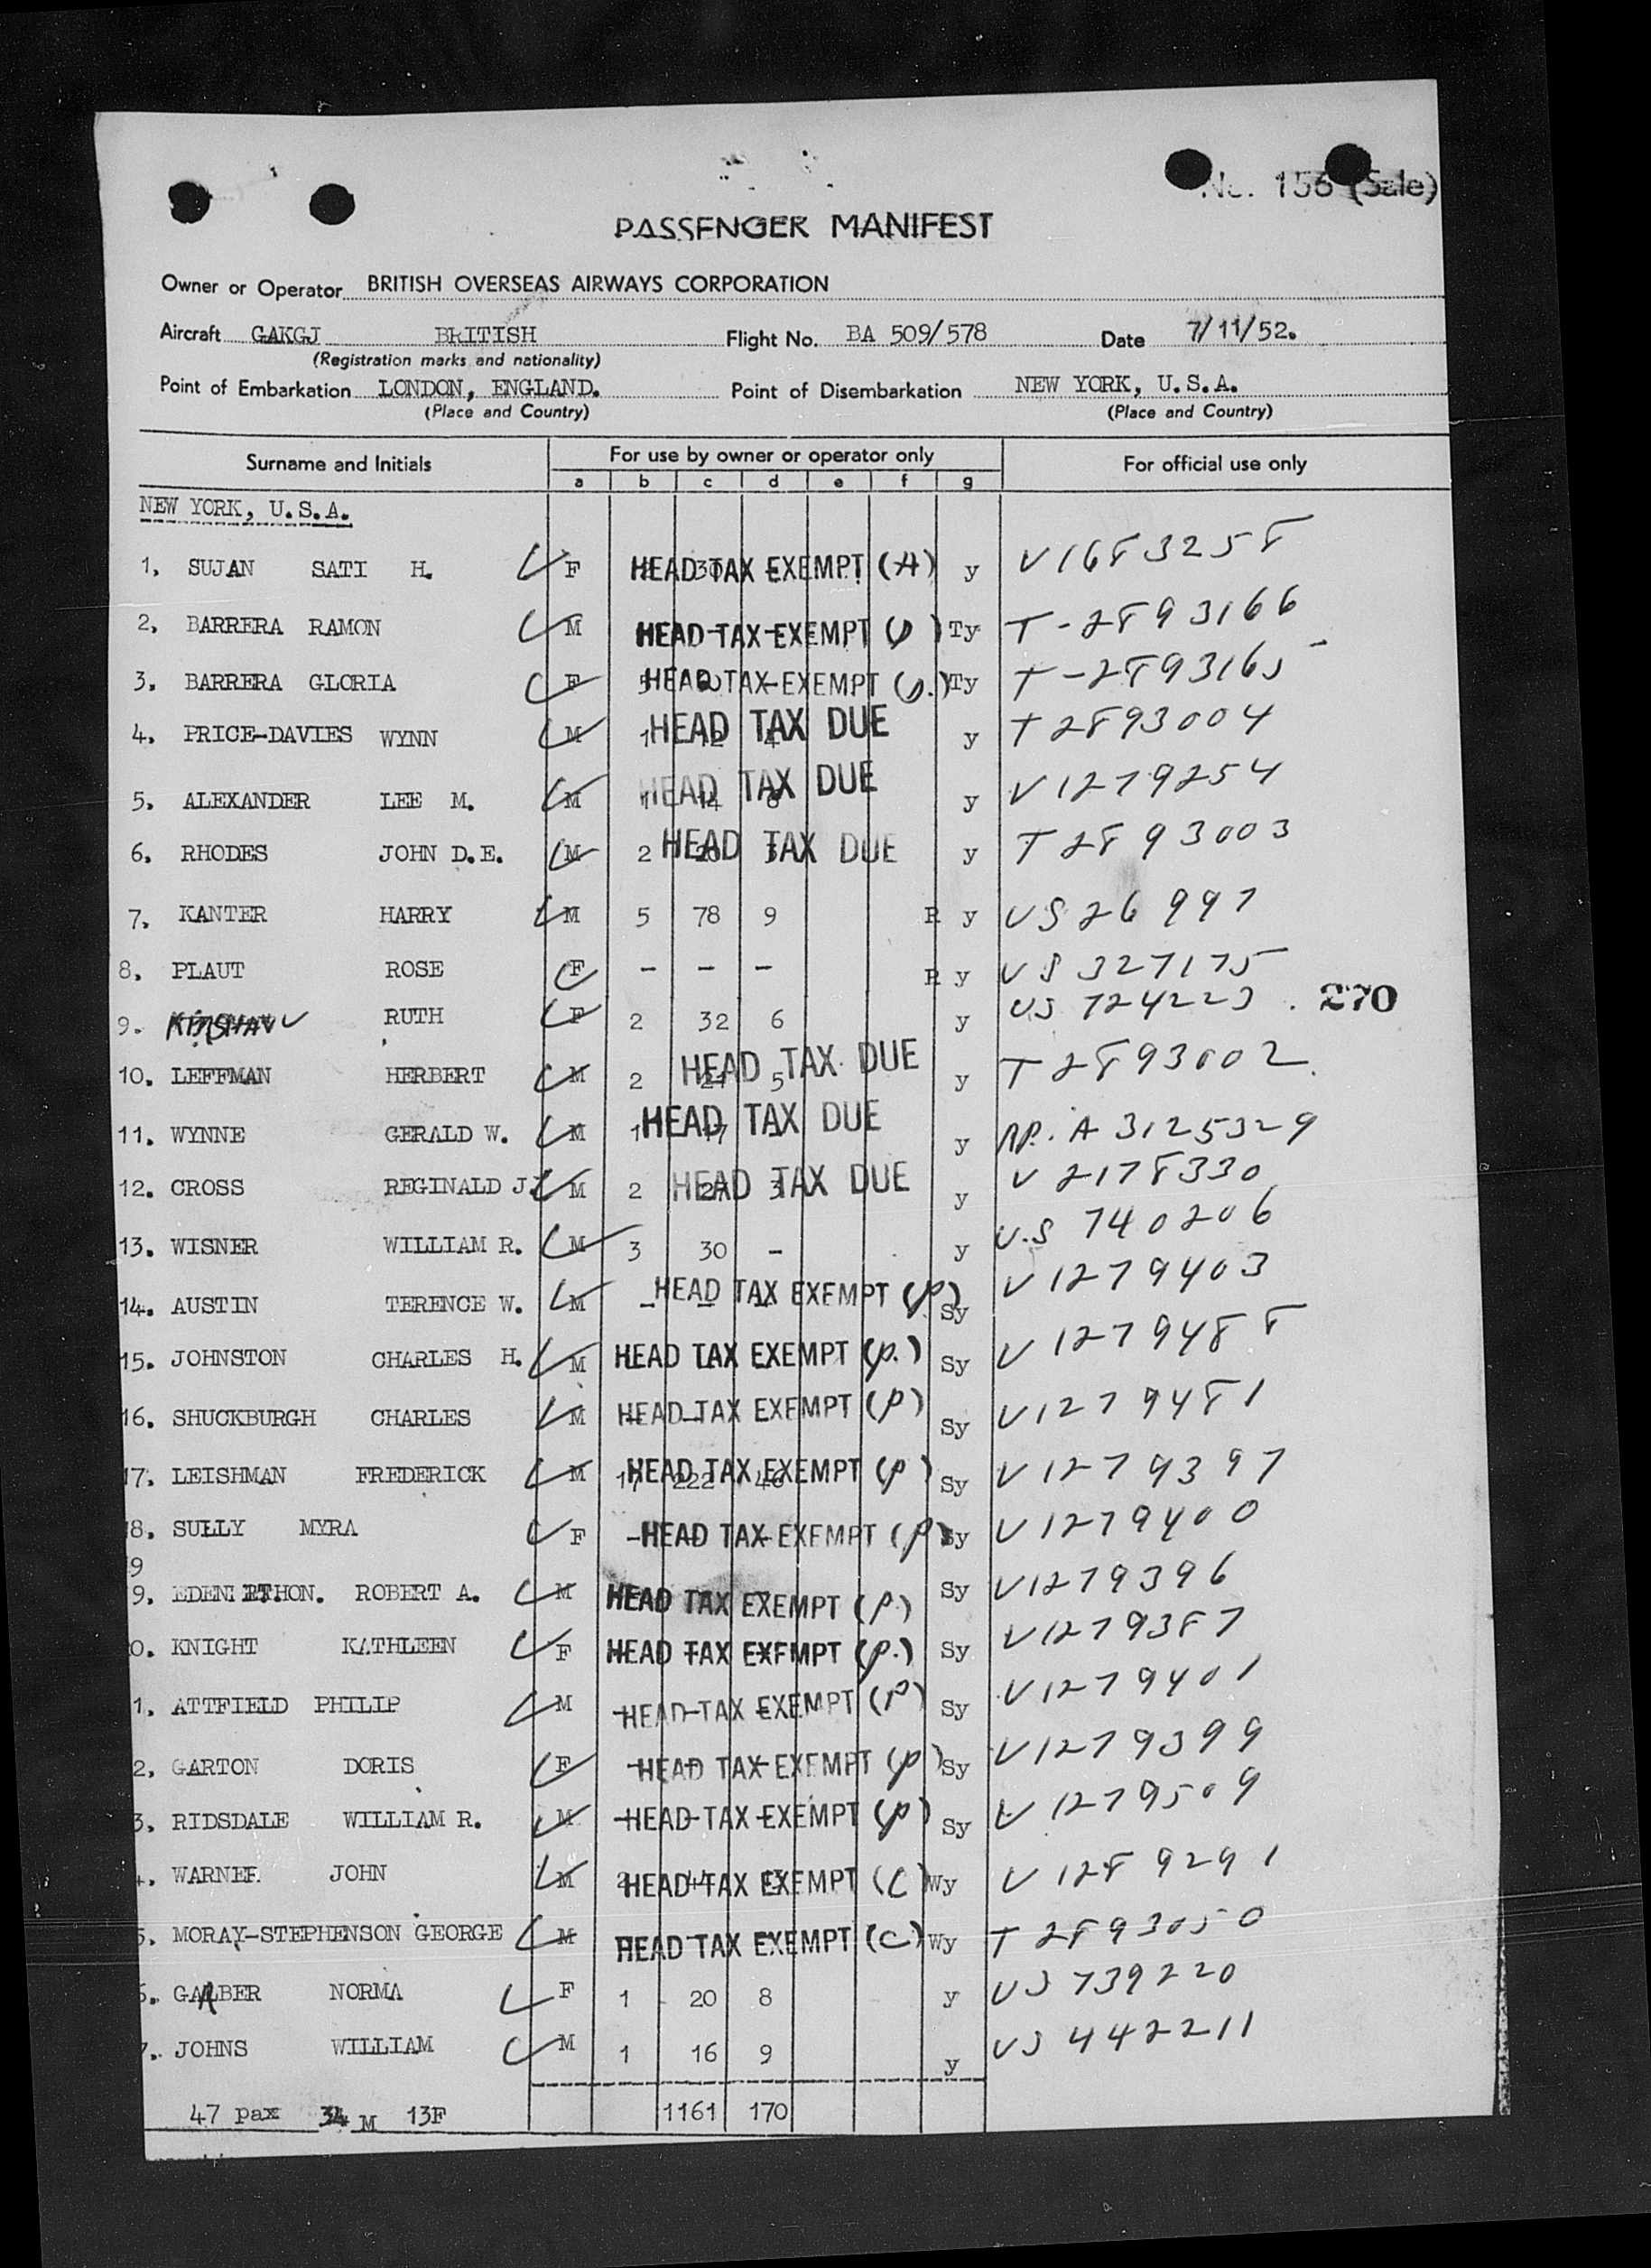 No. 156 (Sale)
PASSENGER MANIFEST
Owner or Operator BRITISH OVERSEAS AIRWAYS CORPORATION
Aircraft GAKGJ BRITISH Flight No. BA 509/578 Date 7/11/52.
(Registration marks and nationality)
Point of Embarkation LONDON, ENGLAND. Point of Disembarkation NEW YORK, U.S.A.
(Place and Country) (Place and Country)
Surname and Initials For use by owner or operator only For official use only
a b c d e f g
NEW YORK, U.S.A.
1. SUJAN SATI H. F HEAD TAX EXEMPT (A) y V1683258
2. BARRERA RAMON M HEAD TAX EXEMPT ( ) Ty T-2893166
3. BARRERA GLORIA F 5 HEAD TAX EXEMPT ( ) Ty T-2893165
4. PRICE-DAVIES WYNN M 1 12 4 HEAD TAX DUE y T2893004
5. ALEXANDER LEE M. M 1 14 8 HEAD TAX DUE y V1279254
6. RHODES JOHN D.E. M 2 20 3 HEAD TAX DUE y T2893003
7. KANTER HARRY M 5 78 9 R y US 26997
8. PLAUT ROSE F - - - R y US 327175
9. RUTH F 2 32 6 y US 724223 . 270
10. LEFFMAN HERBERT M 2 21 5 HEAD TAX DUE y T2893002
11. WYNNE GERALD W. M 1 17 HEAD TAX DUE y RP. A 3125329
12. CROSS REGINALD J. M 2 27 3 HEAD TAX DUE y V2178330
13. WISNER WILLIAM R. M 3 30 - y U.S 740206
14. AUSTIN TERENCE W. M - - - HEAD TAX EXEMPT (p) Sy V1279403
15. JOHNSTON CHARLES H. M HEAD TAX EXEMPT (p.) Sy V1279488
16. SHUCKBURGH CHARLES M HEAD TAX EXEMPT (p) Sy V1279481
17. LEISHMAN FREDERICK M 17 222 46 HEAD TAX EXEMPT (p) Sy V1279397
8. SULLY MYRA F HEAD TAX EXEMPT (p) Sy V1279400
9
9. EDEN RT.HON. ROBERT A. M HEAD TAX EXEMPT (p.) Sy V1279396
0. KNIGHT KATHLEEN F HEAD TAX EXEMPT (p.) Sy V1279387
1. ATTFIELD PHILIP M HEAD TAX EXEMPT (p) Sy V1279401
2. GARTON DORIS F HEAD TAX EXEMPT (p) Sy V1279399
3. RIDSDALE WILLIAM R. M HEAD TAX EXEMPT (p) Sy V1279509
4. WARNER JOHN M 2 44 HEAD TAX EXEMPT (C) Wy V1289291
5. MORAY-STEPHENSON GEORGE M HEAD TAX EXEMPT (C) Wy T2893050
6. GARBER NORMA F 1 20 8 y US 739220
7. JOHNS WILLIAM M 1 16 9 y US 442211
47 pax 34 M 13F 1161 170